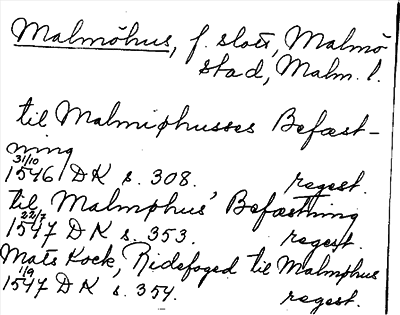 Malmöhus, f. slott, Malmö
stad, Malm. l.
til Malmøhusses Befæst-
ning
31/10
1546 DK s. 308. regest.
til Malmøhus' Befæstning
22/7
1547 DK s. 353. regest.
Mats Kock, Ridefoged til Malmøhus
1/9
1547 DK s. 354. regest.